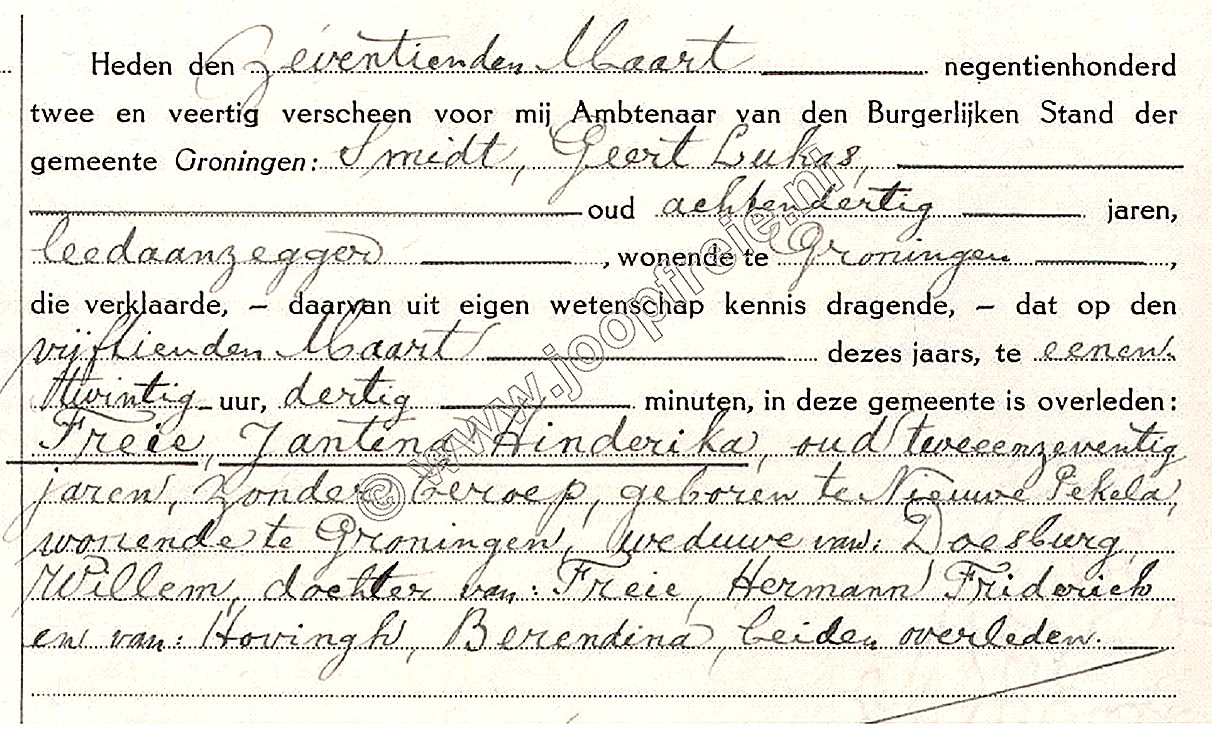 Heden den zeventienden Maart negentienhonderd
twee en veertig verscheen voor mij Ambtenaar van den Burgerlijken Stand der
gemeente Groningen: Smidt, Geert Lukas,
oud achtendertig jaren,
leedaanzegger, wonende te Groningen,
die verklaarde, – daarvan uit eigen wetenschap kennis dragende, – dat op den
vijftienden Maart dezes jaars, te eenen
twintig uur, dertig minuten, in deze gemeente is overleden:
Freie, Jantena Hinderika, oud tweeenzeventig
jaren, zonder beroep, geboren te Nieuwe Pekela,
wonende te Groningen, weduwe van: Doesburg,
Willem, dochter van: Freie, Hermann Friderich
en van: Hovingh, Berendina, beiden overleden.
© www.joopfreie.nl